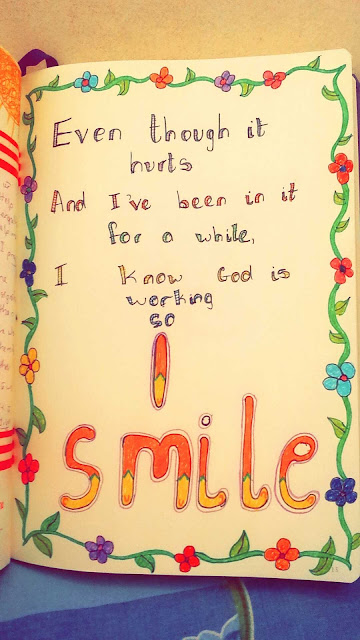 Even though it
hurts
And I've been in it
for a while,
I know God is
working
so
I
smile